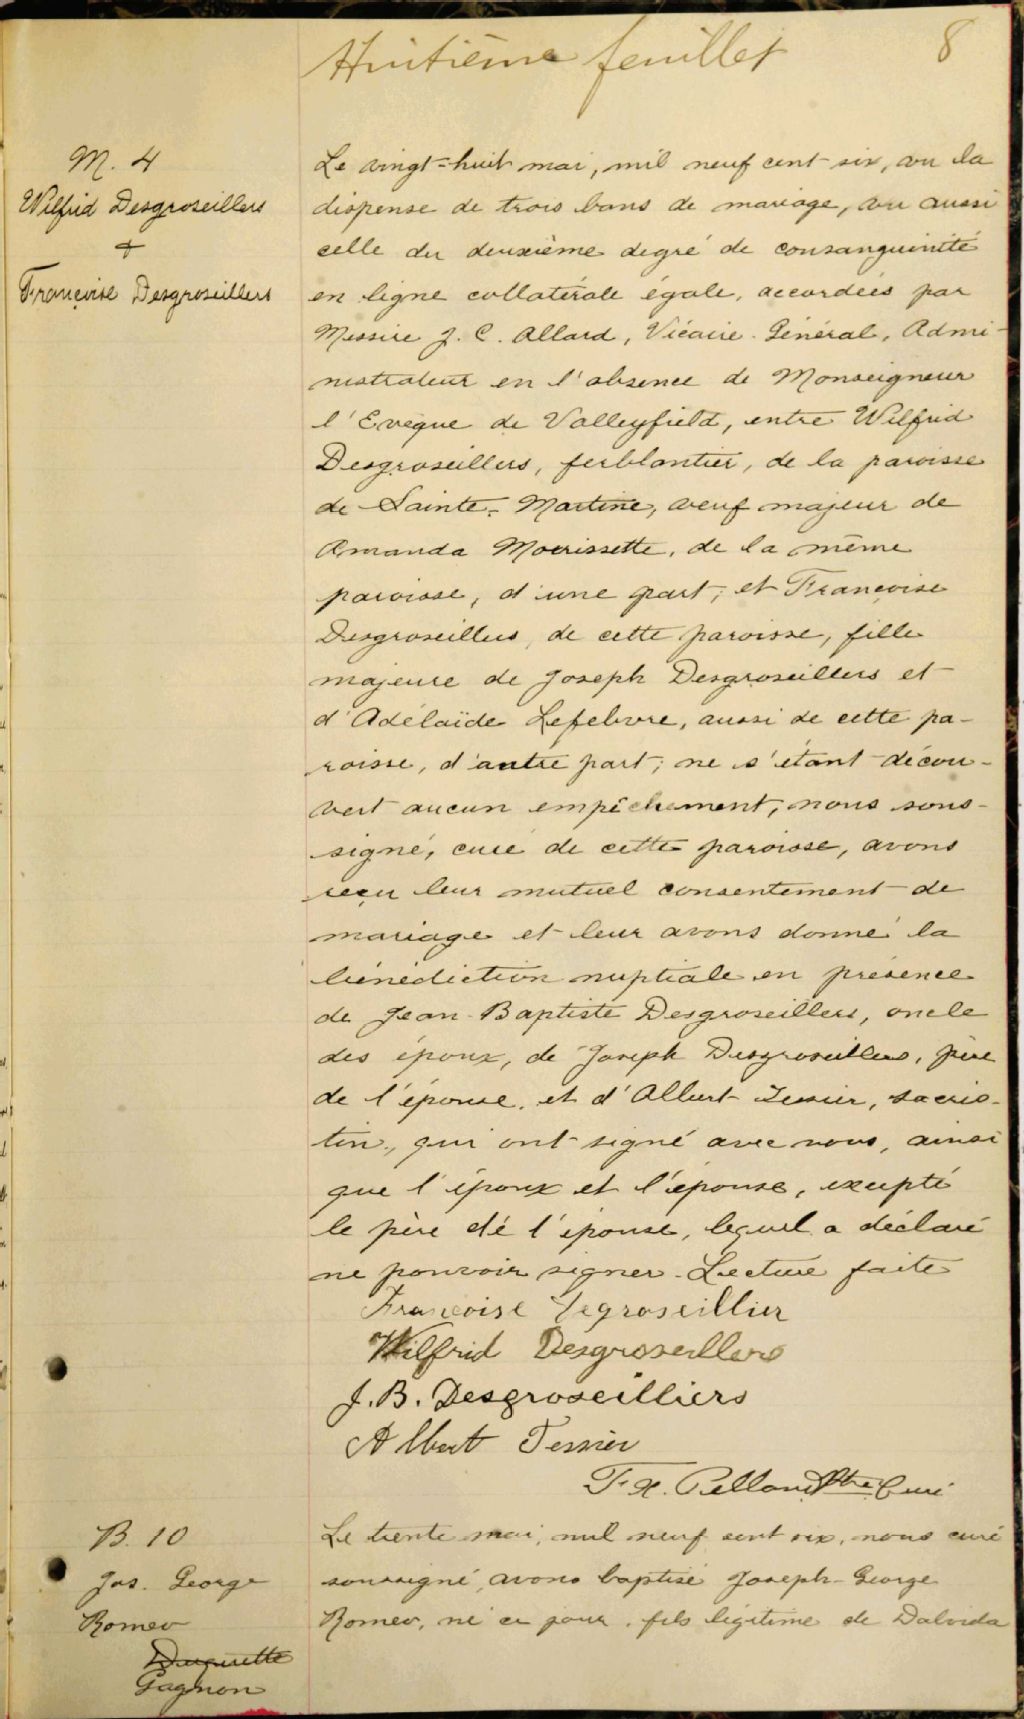 Huitième feuillet
8
M. 4
Wilfrid Desgroseillers
+
Françoise Desgroseillers
Le vingt-huit mai, mil neuf cent six, vu la
dispense de trois bans de mariage, vu aussi
celle du deuxième degré de consanguinité
en ligne collatérale égale, accordées par
Messire J. C. Allard, Vicaire-Général, Admi-
nistrateur en l'absence de Monseigneur
l'Evêque de Valleyfield, entre Wilfrid
Desgroseillers, ferblantier, de la paroisse
de Sainte-Martine, veuf majeur de
Amanda Morrissette, de la même
paroisse, d'une part; et Françoise
Desgroseillers, de cette paroisse, fille
majeure de Joseph Desgroseillers et
d'Adélaïde Lefebvre, aussi de cette pa-
roisse, d'autre part; ne s'étant décou-
vert aucun empêchement, nous sous-
signé, curé de cette paroisse, avons
reçu leur mutuel consentement de
mariage et leur avons donné la
bénédiction nuptiale en présence
de Jean-Baptiste Desgroseillers, oncle
des époux, de Joseph Desgroseillers, père
de l'épouse, et d'Albert Tessier, sacris-
tin, qui ont signé avec nous, ainsi
que l'époux et l'épouse, excepté
le père de l'épouse, lequel a déclaré
ne pouvoir signer. Lecture faite
Françoise Degroseillier
Wilfrid Desgroseillers
J. B. Desgroseilliers
Albert Tessier
F. X. Pelland Ptre Curé
B. 10
Jos. George
Romeo
Duquette
Gagnon
Le trente mai, mil neuf cent six, nous curé
soussigné, avons baptisé Joseph-George
Romeo, né ce jour, fils légitime de Dalvida